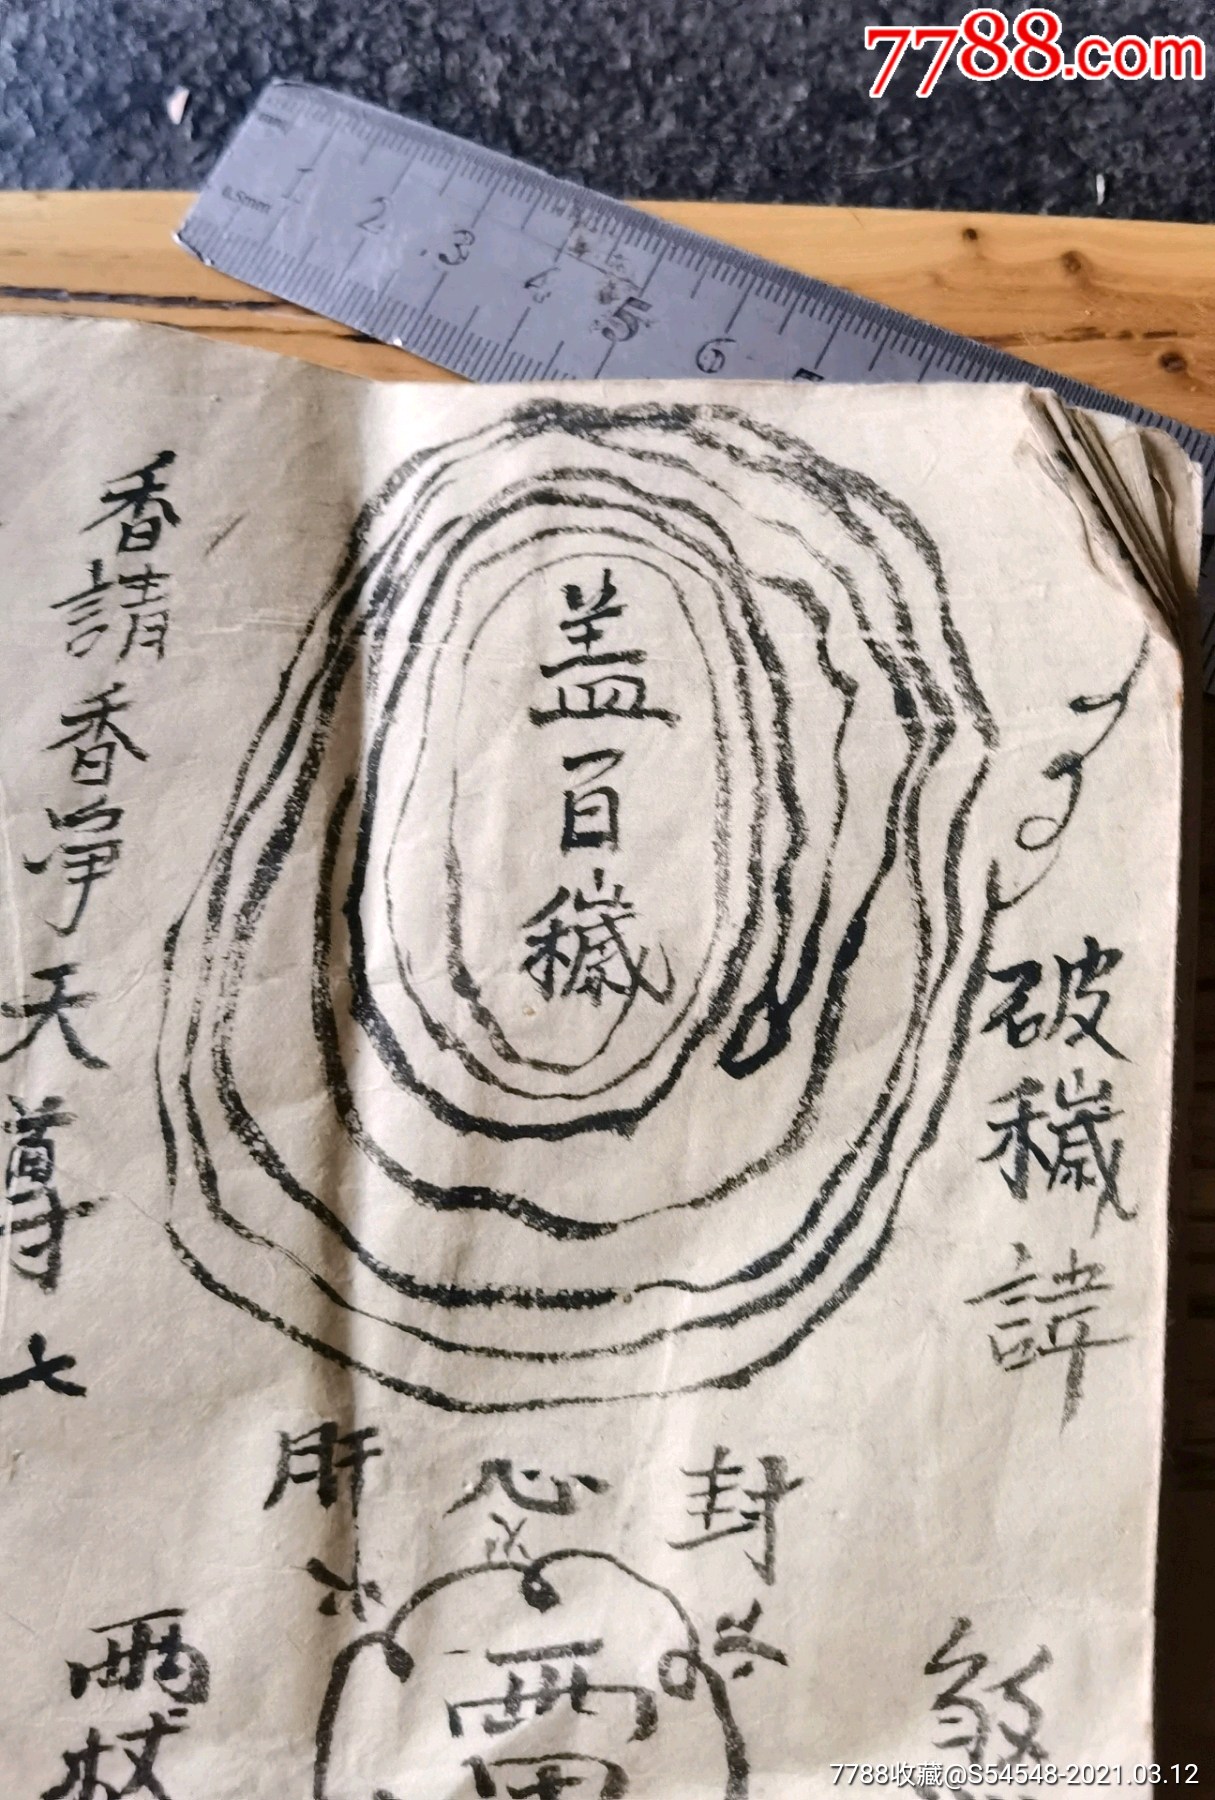 7788.com
0.5mm
1 2 3 4 5 6
破穢諱
盖百穢
香請香爭天尊七
封
心
肝
火
雷
煞
两杖
7788收藏@S54548-2021.03.12